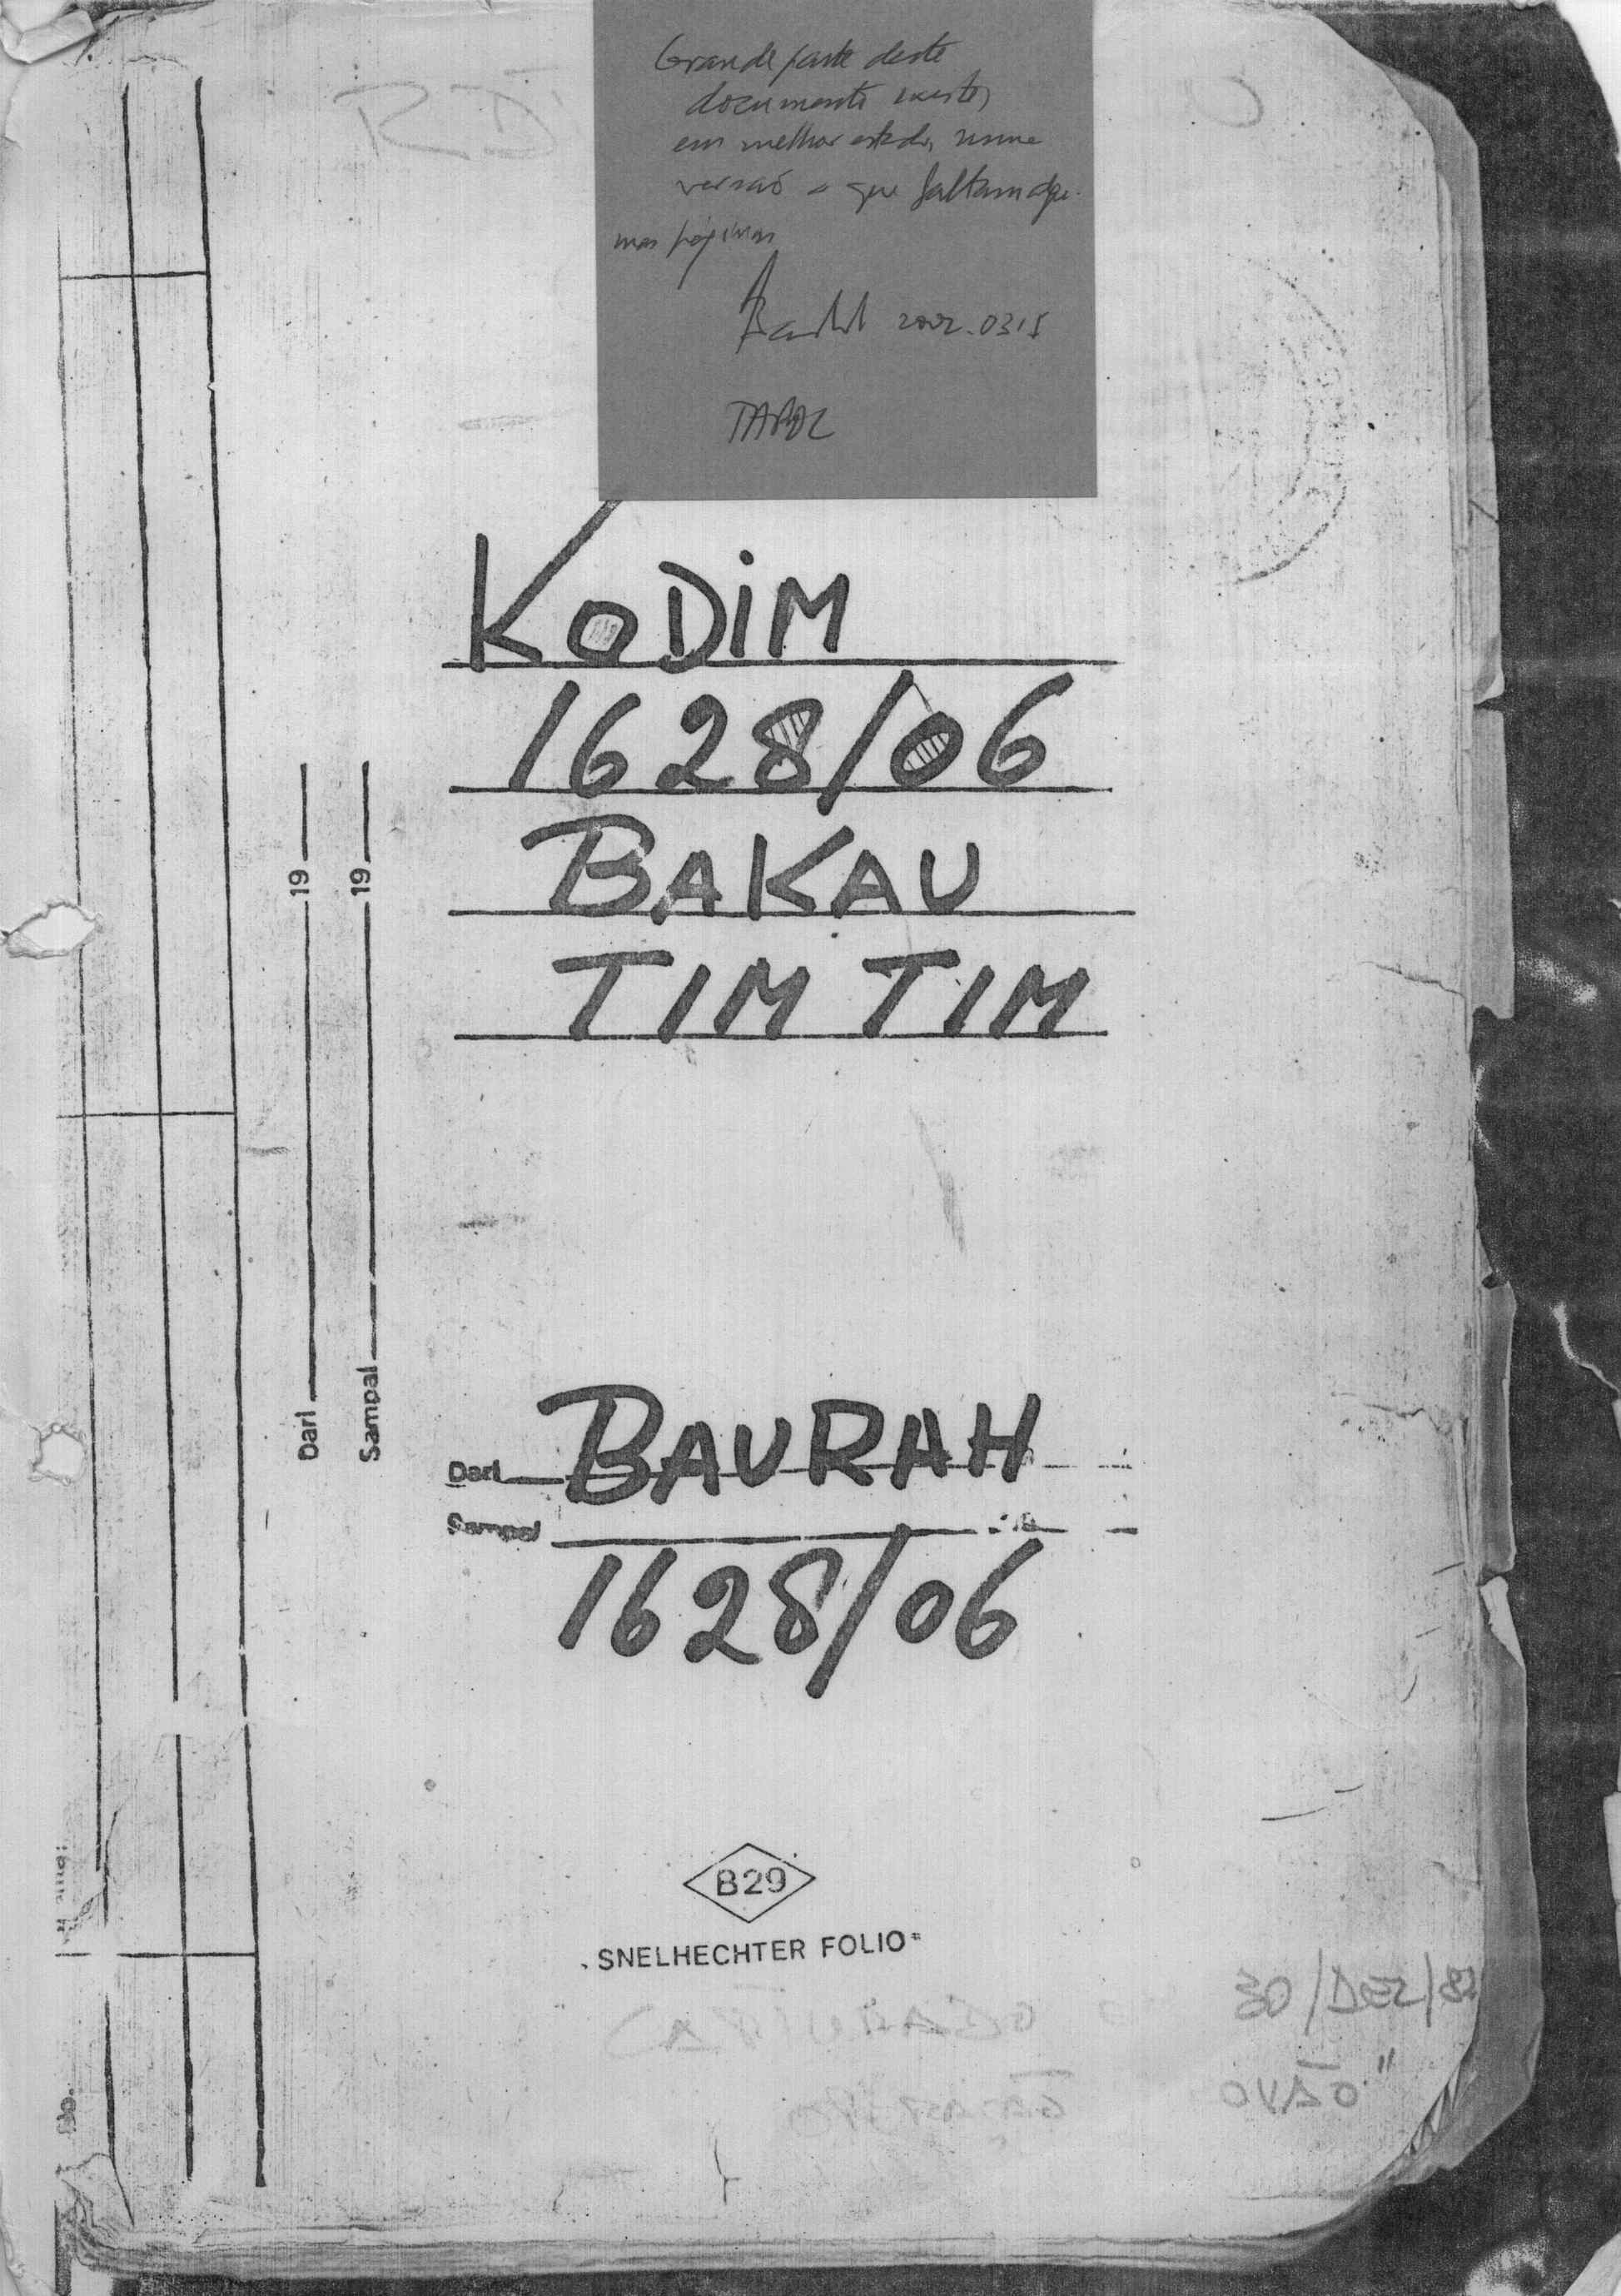 Grande parte deste
documento existe,
em melhor estado, numa
versão a que faltam algu-
mas páginas
2002.0315
TAPOL
KODIM
1628/06
BAKAU
TIM TIM
Dari 19
Sampai 19
Dari BAURAH
Sampai
1628/06
B29
SNELHECHTER FOLIO
30/DEZ/82